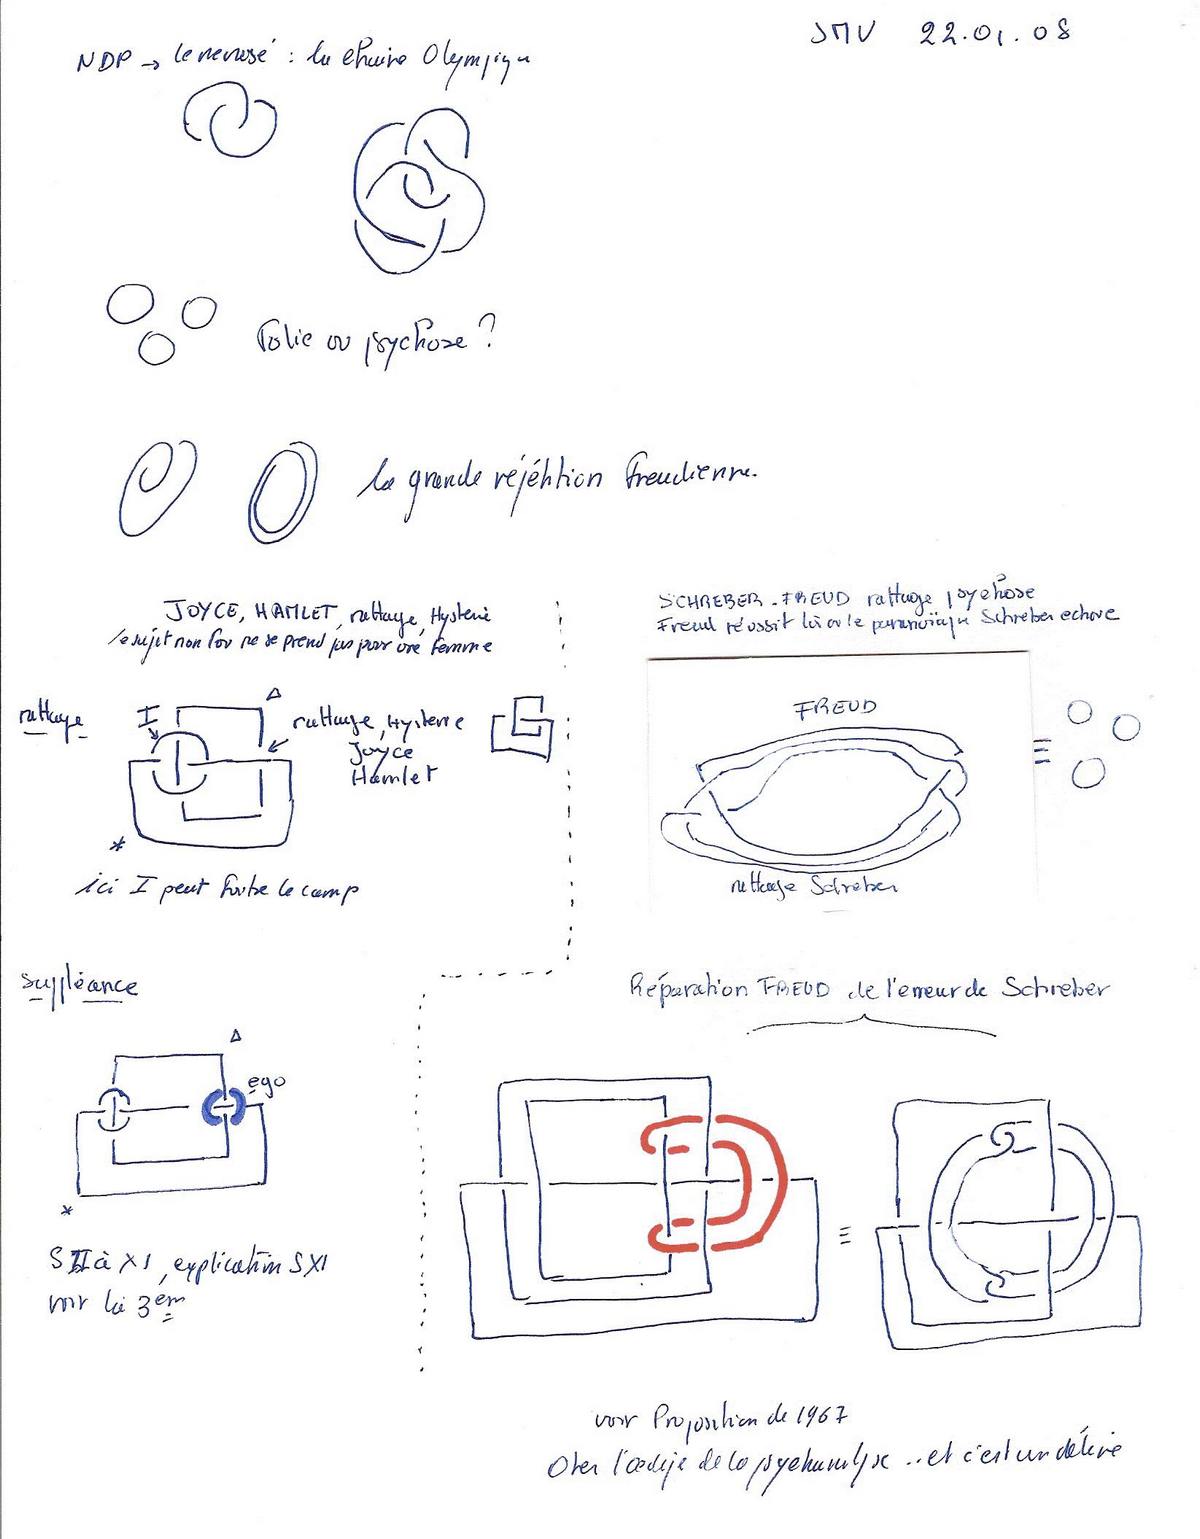 JMV 22.01.08
NDP → le nevrosé : la chaine Olympique
Folie ou psychose ?
la grande réjéhtion Freudienne.
JOYCE, HAMLET, rattage, Hysterie
le sujet non fou ne se prend pas pour une femme
SCHREBER - FREUD rattage psychose
Freud réussit là où le paranoïaque Schreber echoue
rattage
I
Δ
rattage, Hysterie
Joyce
Hamlet
*
ici I peut foutre le camp
FREUD
≡
rattage Schreber
suppléance
Δ
ego
*
SII à XI, explication SXI
voir la 3em
Réparation FREUD de l'erreur de Schreber
≡
voir Proposition de 1967
Oter l'œdipe de la psychanalyse .. et c'est un délire